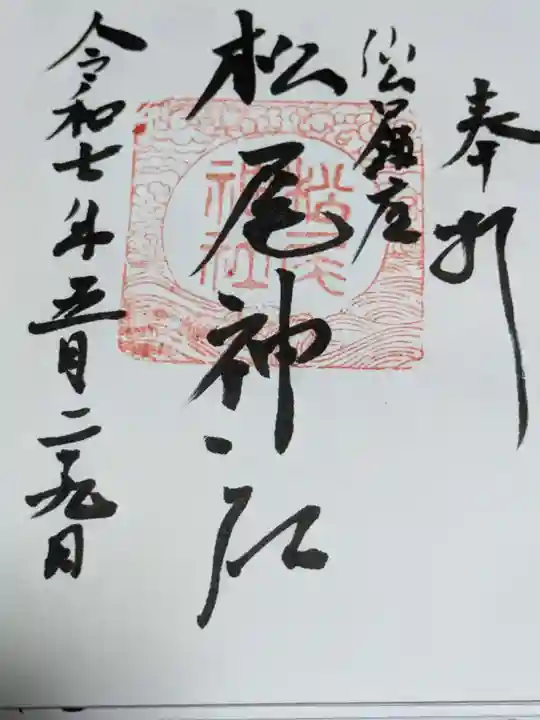 奉拝
松尾神社
令和七年五月二十九日
松尾
神社